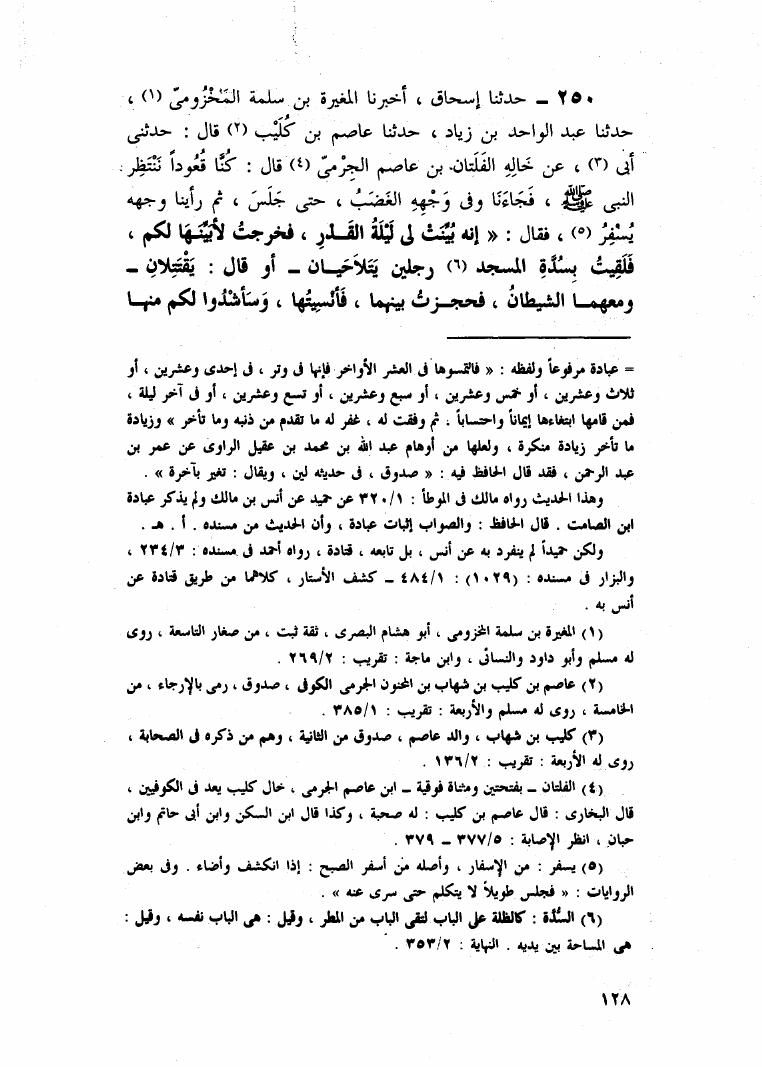 ٢٥٠ ـ حدثنا إسحاق ، أخبرنا المغيرة بن سلمة المَخْزُومىّ (١) ،
حدثنا عبد الواحد بن زياد ، حدثنا عاصم بن كُلَيْب (٢) قال : حدثنى
أبى (٣) ، عن خَالِهِ الفَلَتان بن عاصم الجِرْمىّ (٤) قال : كُنَّا قُعُوداً نَنْتَظِر
النبى ﷺ ، فَجَاءَنَا وفى وَجْهِهِ الغَضَبُ ، حتى جَلَسَ ، ثم رأينا وجهه
يُسْفِرُ (٥) ، فقال : « إنه بُيِّنَتْ لى لَيْلَةُ القَـدْرِ ، فخرجتُ لأُبَيِّنَهَا لكم ،
فَلَقِيتُ بِسُدَّةِ المسجد (٦) رجلين يَتَلاَحَيَـان ـ أو قال : يَقْتَتِلانِ ـ
ومعهمـا الشيطانُ ، فحجـزتُ بينهما ، فَأُنْسِيتُها ، وَسَأَشْدُوا لكم منهـا
= عبادة مرفوعاً ولفظه : « فالتمسوها فى العشر الأواخر فإنها فى وتر ، فى إحدى وعشرين ، أو
ثلاث وعشرين ، أو خمس وعشرين ، أو سبع وعشرين ، أو تسع وعشرين ، أو فى آخر ليلة ،
فمن قامها ابتغاءها إيماناً واحتساباً . ثم وفقت له ، غفر له ما تقدم من ذنبه وما تأخر » وزيادة
ما تأخر زيادة منكرة ، ولعلها من أوهام عبد الله بن محمد بن عقيل الراوى عن عمر بن
عبد الرحمن ، فقد قال الحافظ فيه : « صدوق ، فى حديثه لين ، ويقال : تغير بآخرة » .
وهذا الحديث رواه مالك فى الموطأ : ٣٢٠/١ عن حميد عن أنس بن مالك ولم يذكر عبادة
ابن الصامت . قال الحافظ : والصواب إثبات عبادة ، وأن الحديث من مسنده . أ . هـ .
ولكن حميداً لم ينفرد به عن أنس ، بل تابعه ، قتادة ، رواه أحمد فى مسنده : ٢٣٤/٣ ،
والبزار فى مسنده : (١٠٢٩) : ٤٨٤/١ ـ كشف الأستار ، كلاهما من طريق قتادة عن
أنس به .
(١) المغيرة بن سلمة المخزومى ، أبو هشام البصرى ، ثقة ثبت ، من صغار التاسعة ، روى
له مسلم وأبو داود والنسائى ، وابن ماجة : تقريب : ٢٦٩/٢ .
(٢) عاصم بن كليب بن شهاب بن المجنون الجرمى الكوفى ، صدوق ، رمى بالإرجاء ، من
الخامسة ، روى له مسلم والأربعة : تقريب : ٣٨٥/١ .
(٣) كليب بن شهاب ، والد عاصم ، صدوق من الثانية ، وهم من ذكره فى الصحابة ،
روى له الأربعة : تقريب : ١٣٦/٢ .
(٤) الفلتان ـ بفتحتين ومثناة فوقية ـ ابن عاصم الجرمى ، خال كليب يعد فى الكوفيين ،
قال البخارى : قال عاصم بن كليب : له صحبة ، وكذا قال ابن السكن وابن أبى حاتم وابن
حبان ، انظر الإصابة : ٣٧٧/٥ ـ ٣٧٩ .
(٥) يسفر : من الإسفار ، وأصله من أسفر الصبح : إذا انكشف وأضاء . وفى بعض
الروايات : « فجلس طويلاً لا يتكلم حتى سرى عنه » .
(٦) السُّدة : كالظلة على الباب لتقى الباب من المطر ، وقيل : هى الباب نفسه ، وقيل :
هى الساحة بين يديه . النهاية : ٣٥٣/٢ .
١٢٨